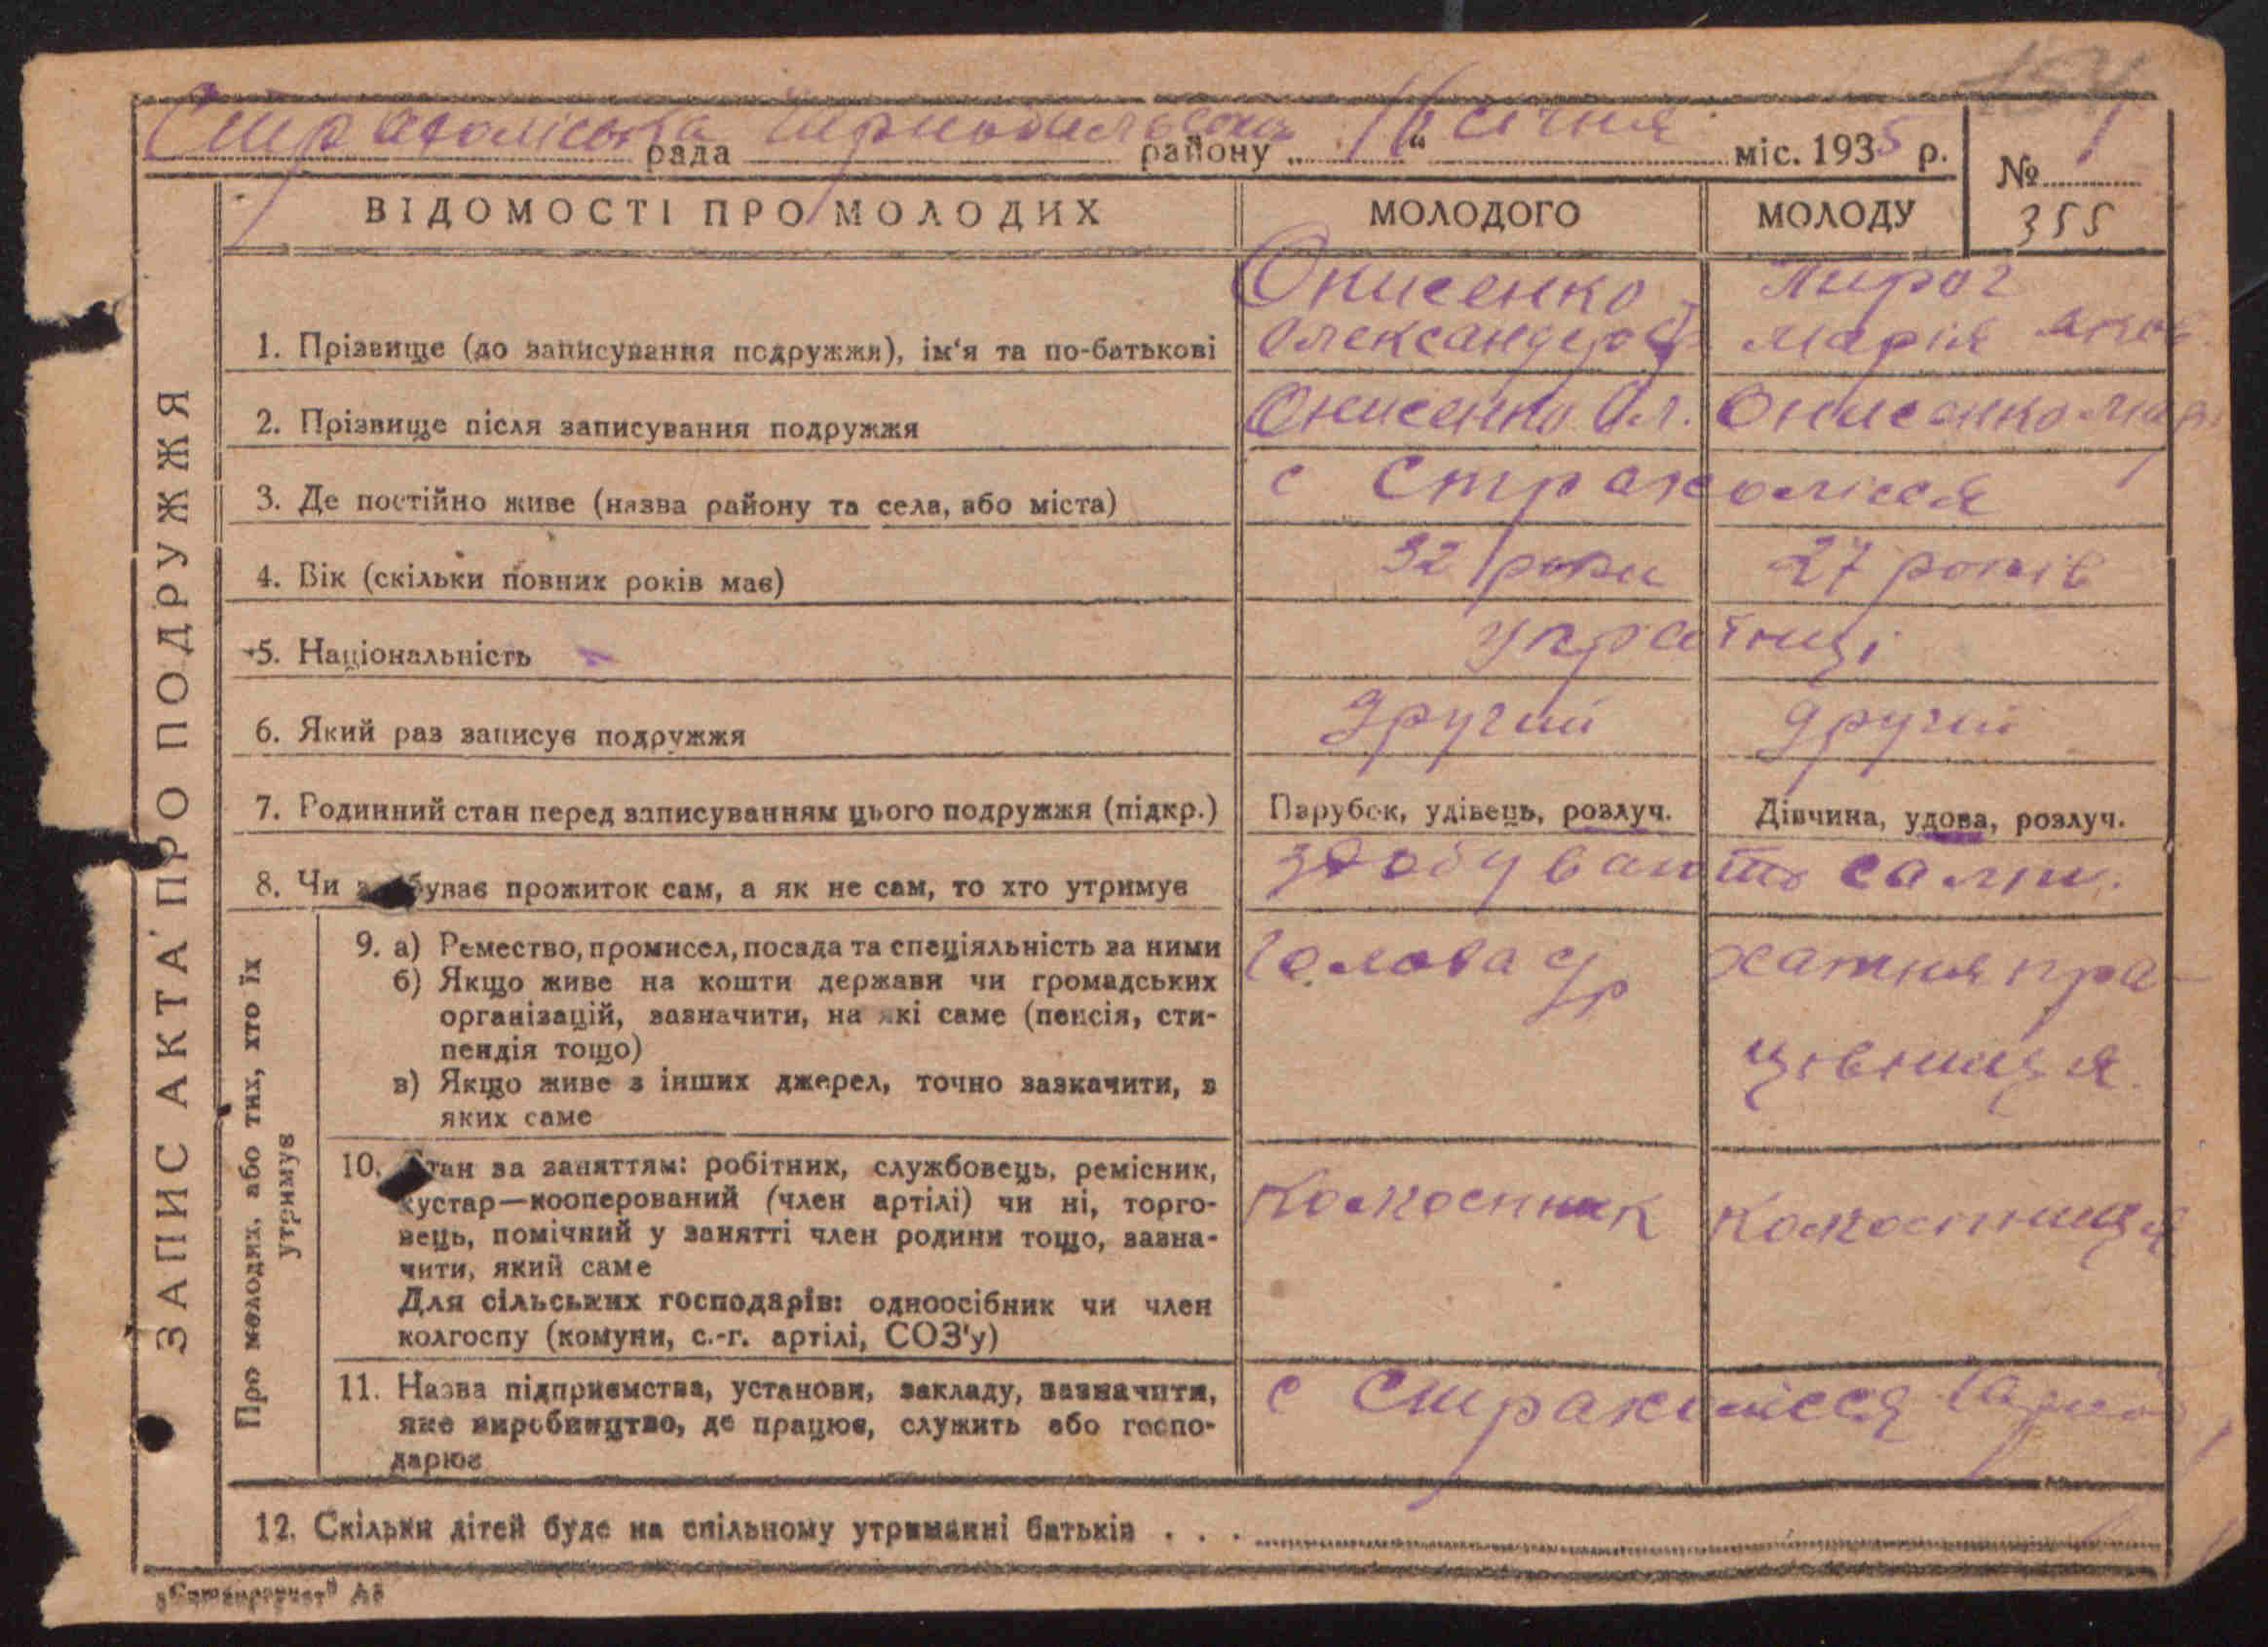 154
Страхоліська рада Чорнобильського району „ 16 “ січня міс. 1935 р.
№ 1
355
ВІДОМОСТІ ПРО МОЛОДИХ МОЛОДОГО МОЛОДУ
ЗАПИС АКТА ПРО ПОДРУЖЖЯ
Онисенко Пирог
1. Прізвище (до записування подружжя), ім'я та по-батькові Олександр Марія
2. Прізвище після записування подружжя Онисенко Ол. Онисенко Мар
3. Де постійно живе (назва району та села, або міста) с Страхолісся
4. Вік (скільки повних років має) 32 роки 27 років
5. Національність Українці
6. Який раз записує подружжя другий другий
7. Родинний стан перед записуванням цього подружжя (підкр.) Парубок, удівець, розлуч. Дівчина, удова, розлуч.
8. Чи здобуває прожиток сам, а як не сам, то хто утримує здобувають сами.
Про молодих, або тих, хто їх утримує
9. а) Ремество, промисел, посада та спеціяльність за ними голова хатня пра-
б) Якщо живе на кошти держави чи громадських
організацій, зазначити, на які саме (пенсія, сти-
пендія тощо) цівниця
в) Якщо живе з інших джерел, точно зазначити, з
яких саме
10. Стан за заняттям: робітник, службовець, ремісник,
кустар—кооперований (член артілі) чи ні, торго- Колхосник Колхостниця
вець, помічний у занятті член родини тощо, зазна-
чити, який саме
Для сільських господарів: одноосібник чи член
колгоспу (комуни, с.-г. артілі, СОЗ'у)
11. Назва підприємства, установи, закладу, зазначити, с Страхолісся
яке виробництво, де працює, служить або госпо-
дарює
12. Скільки дітей буде на спільному утриманні батьків . . .